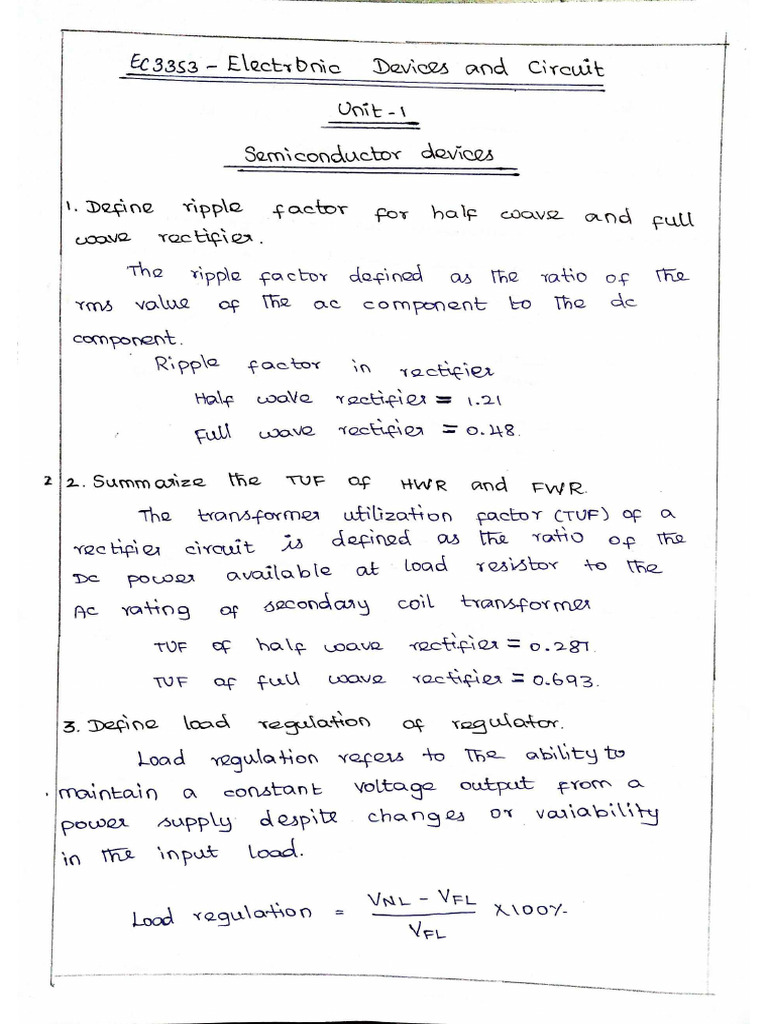 EC3353 - Electronic Devices and Circuit
Unit - 1
Semiconductor devices
1. Define ripple factor for half wave and full
wave rectifier.
The ripple factor defined as the ratio of the
rms value of the ac component to the dc
component.
Ripple factor in rectifier
Half wave rectifier = 1.21
Full wave rectifier = 0.48.
2 2. Summarize the TUF of HWR and FWR.
The transformer utilization factor (TUF) of a
rectifier circuit is defined as the ratio of the
DC power available at load resistor to the
AC rating of secondary coil transformer
TUF of half wave rectifier = 0.287.
TUF of full wave rectifier = 0.693.
3. Define load regulation of regulator.
Load regulation refers to the ability to
maintain a constant voltage output from a
power supply despite changes or variability
in the input load.
Load regulation = VNL - VFL / VFL × 100%.